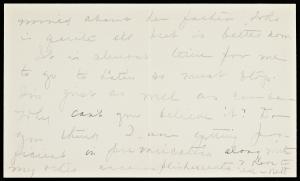 worried about her father who
is quite ill but is better now
It is almost time for me
to go to Latin so must stop.
I'm just as well as can be
Why can't you believe it? Don't
you think I am getting pro-
ficient in punctuation along with
my other accomplishments? I have to